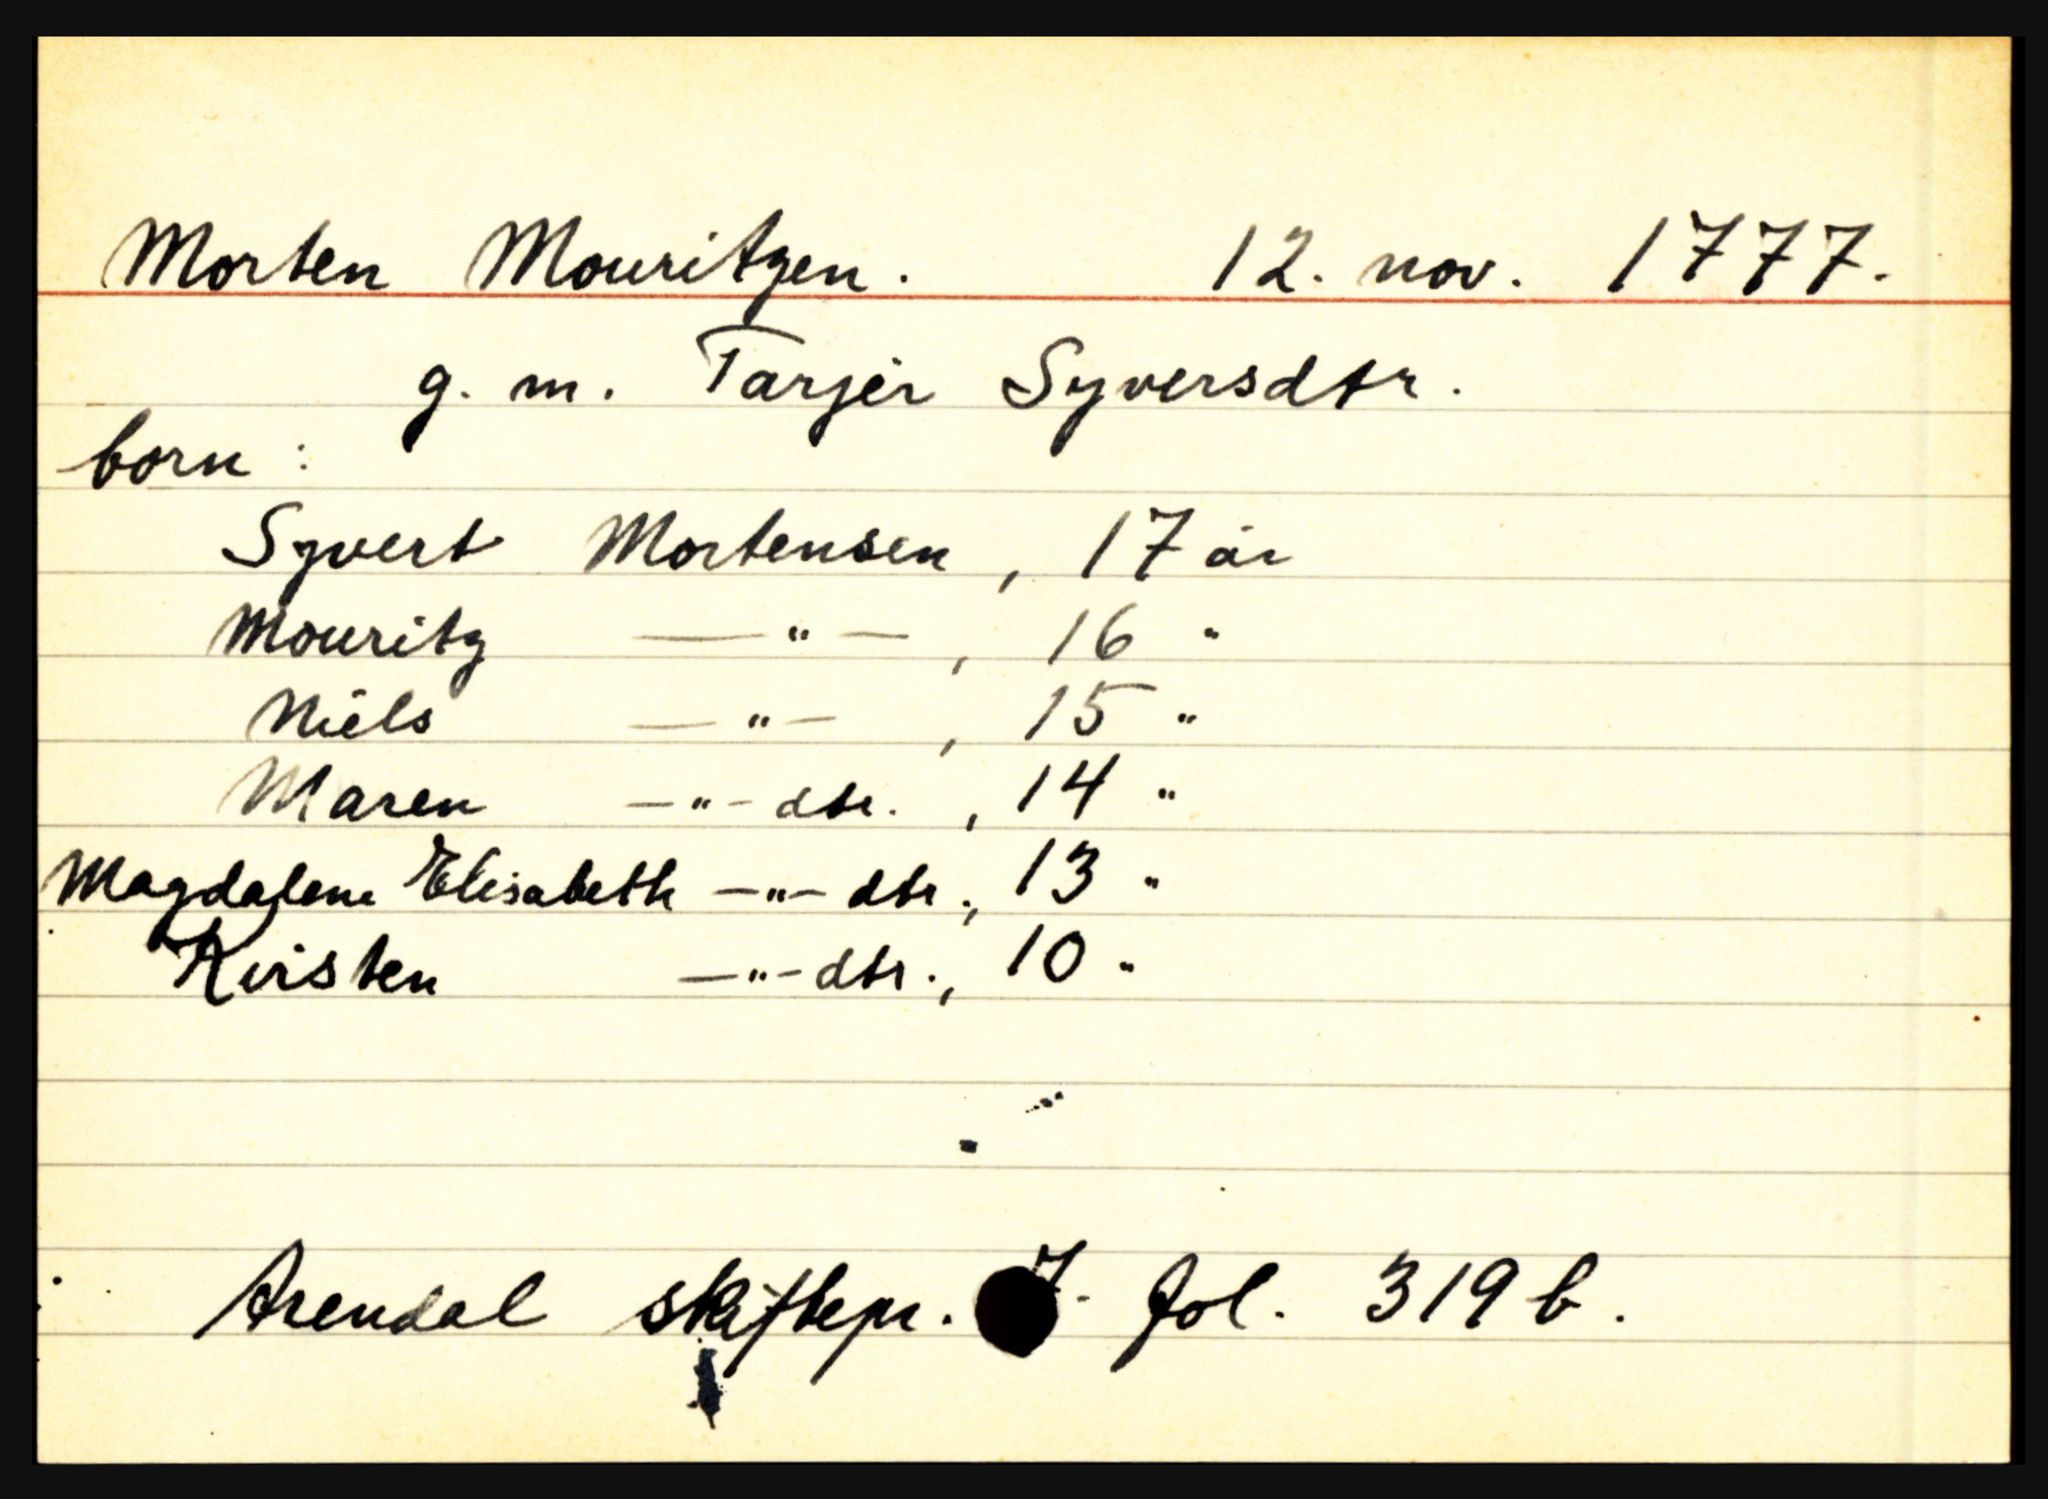 Morten Mouritzen. 12. nov. 1777.
g. m. Tarjer Syversdtr.
born:
Syvert Mortensen, 17 år
Mouritz —"—, 16 "
Niels —"—, 15 "
Maren —"— dtr., 14 "
Magdalene Elisabeth —"— dtr., 13 "
Kirsten —"— dtr., 10 "
Arendal skiftepr. 7. fol. 319 b.